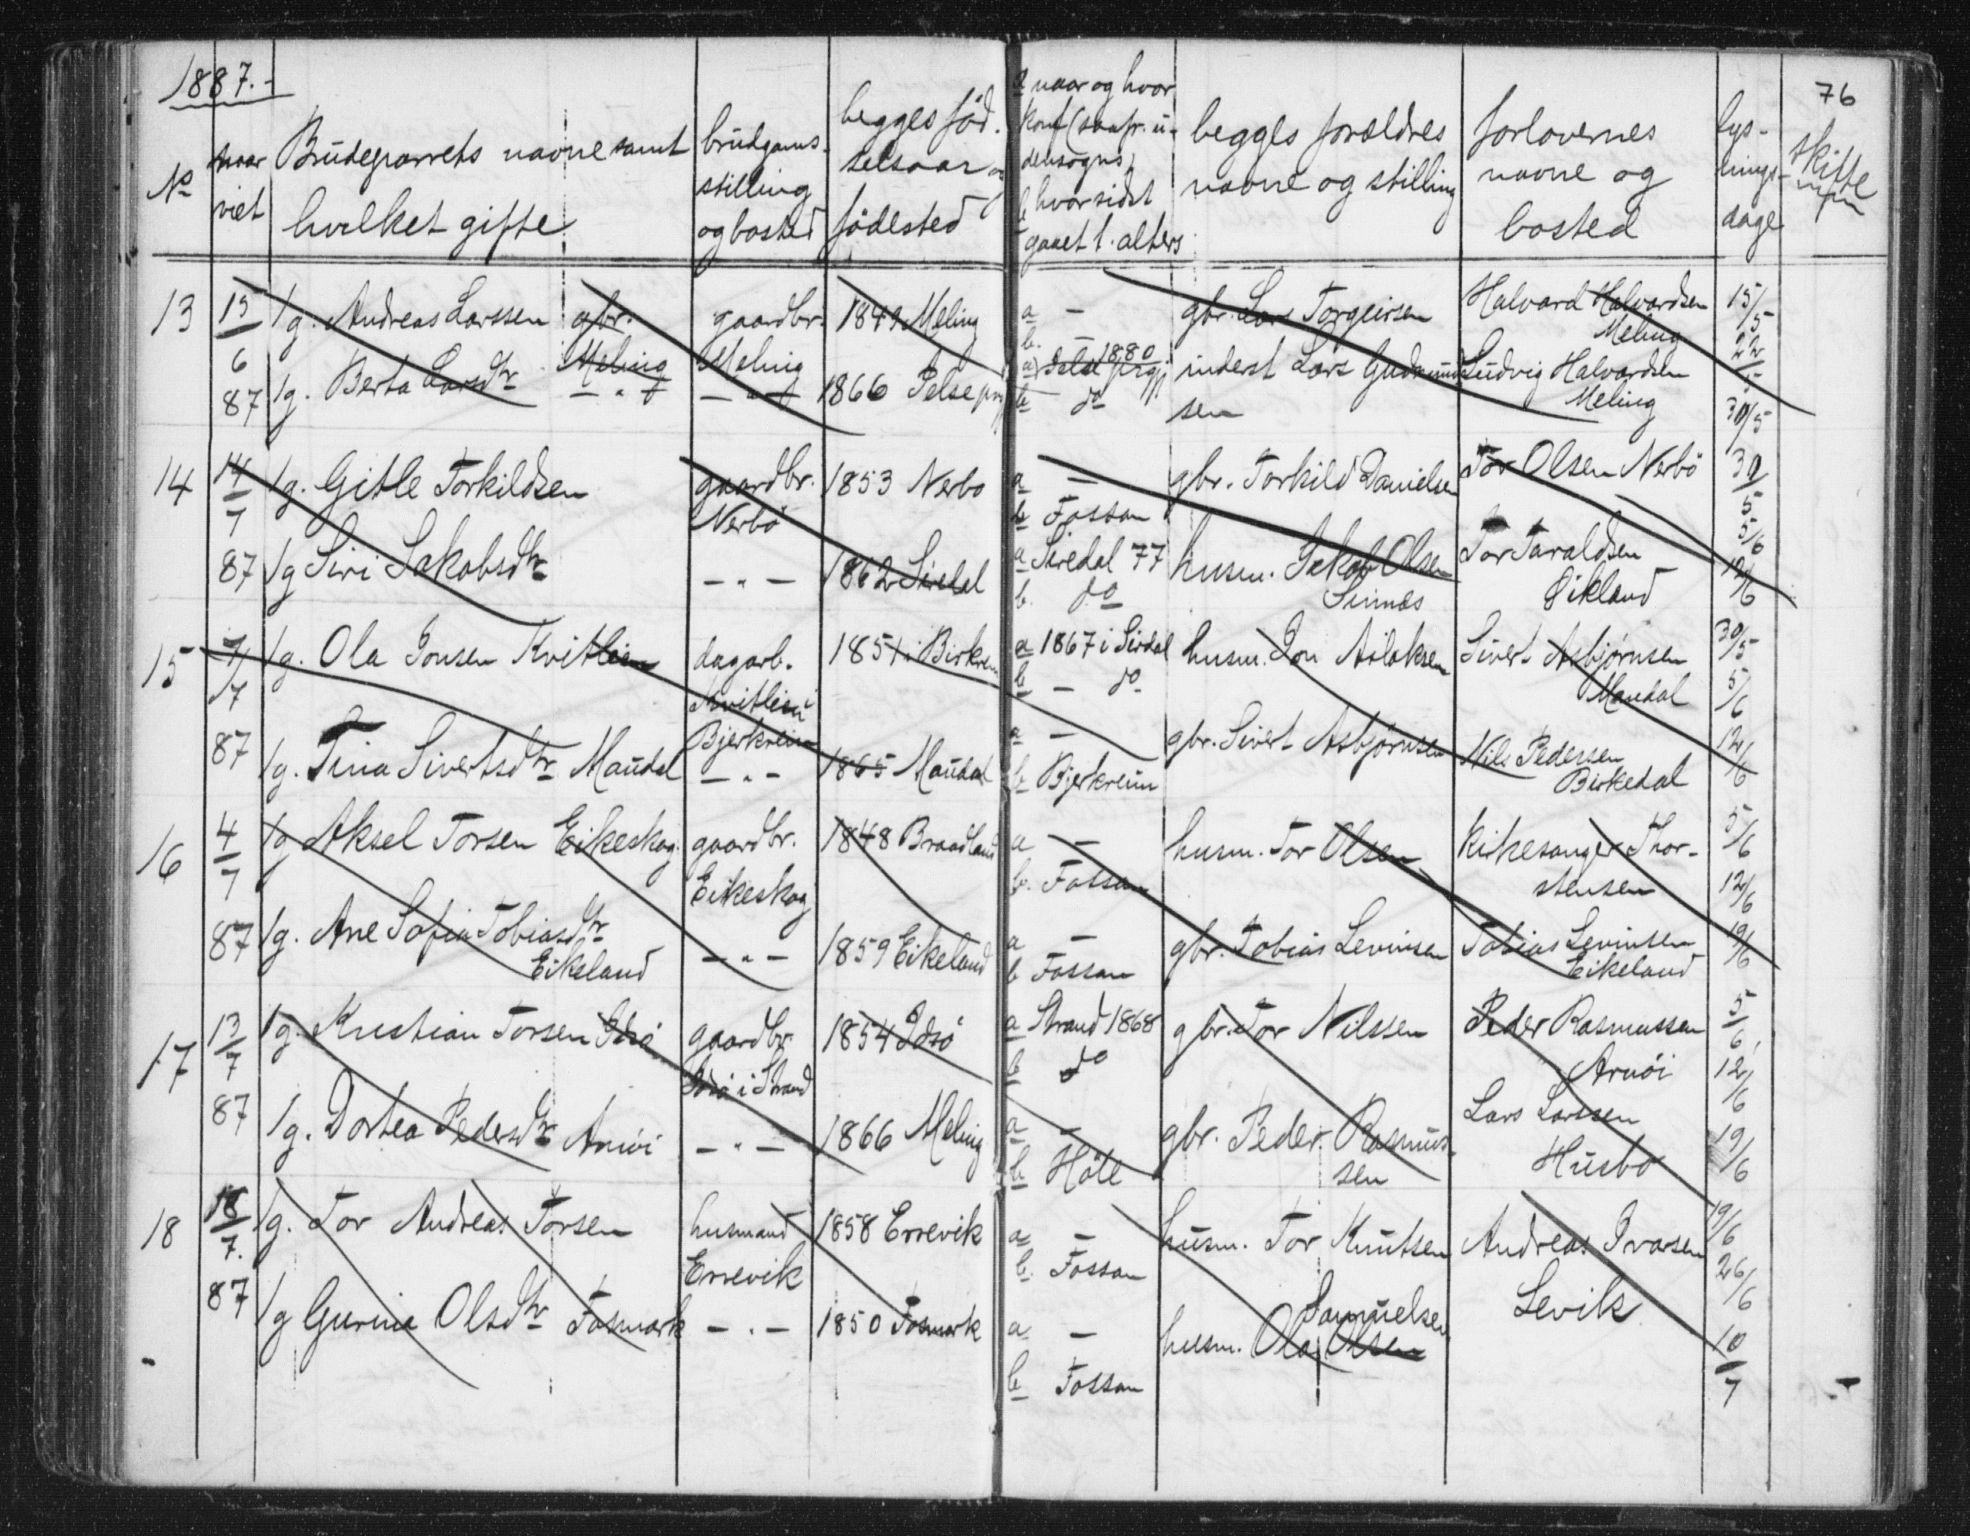 1887.-
76
No
hvor
viet
Brudeparrets navne samt
hvilket gifte
brudgoms
stilling
og bosted
begges föd-
selsaar og
födested
a naar og hvor
konf (saafr. u-
densogns)
b hvor sidst
gaaet t. alters
begges forældres
navne og stilling
forlovernes
navne og
bosted
lys-
nings-
dage
skifte
13
15/6 87
1g. Andreas Larssen gbr. Meling
gaardbr. Meling
1849 Meling
a —
b. —
gbr. Lars Torgeirsen
Halvard Halvardsen
Meling
15/5
22/5
30/5
1g. Berta Larsdtr — " —
— " —
1866 Jelse prgj
a) Jelse prgj 1880
b do
inderst Lars Gudmund
sen
Ludvig Halvardsen
Meling
14
14/7 87
1g. Gitle Torkildsen
gaardbr.
Nerbö
1853 Nerbö
a —
b Fossan
gbr. Torkild Danielsen
Tor Olsen Nerbö
30/5
5/6
12/6
1g Siri Jakobsdtr
— " —
1862 Siredal
a Siredal 77
b. do
husm. Jakob Olsen
Sinnes
Tor Taraldsen
Öikland
15
7/7
87
1g. Ola Jonsen Kvitlein
dagarb.
Kvitlein i
Bjerkreim
1851 i Birkrem
a 1867 i Sirdal
b — do
husm. Jon Aslaksen
Sivert Asbjørnsen
Maudal
30/5
5/6
12/6
1g. Tina Sivertsdtr Maudal
— " —
1865 Maudal
a —
b Bjerkreim
gbr. Sivert Asbjørnsen
Nils Pedersen
Birkedal
16
4/7
87
1g Aksel Torsen Eikeskog
gaardbr.
Eikeskog
1848 Braadland
a —
b. Fossan
husm. Tor Olsen
Kirkesanger Thor-
stensen
5/6
12/6
19/6
1g. Ane Sofia Tobiasdtr
Eikeland
— " —
1859 Eikeland
a —
b Fossan
gbr. Tobias Levinsen
Tobias Levinsen
Eikeland
17
13/7
87
1g. Kristian Torsen Idsö
gaardbr.
Idsö i Strand
1854 Idsö
a Strand 1868
b do
gbr. Tor Nilssen
Peder Rasmussen
Arnöi
5/6
12/6
19/6
1g. Dortea Pedersdtr Arnöi
— " —
1866 Meling
a —
b Höle
gbr. Peder Rasmus-
sen
Lars Larssen
Husbö
18
18/7.
87
1g. Tor Andreas Torsen
husmand
Errevik
1858 Errevik
a —
b. Fossan
husm. Tor Knutsen
Andreas Ivarsen
Levik
19/6
26/6
10/7
1g Gurine Olsdtr Fosmark
— " —
1850 Fosmark
a —
b Fossan
Samuelsen
husm. Ola Olsen